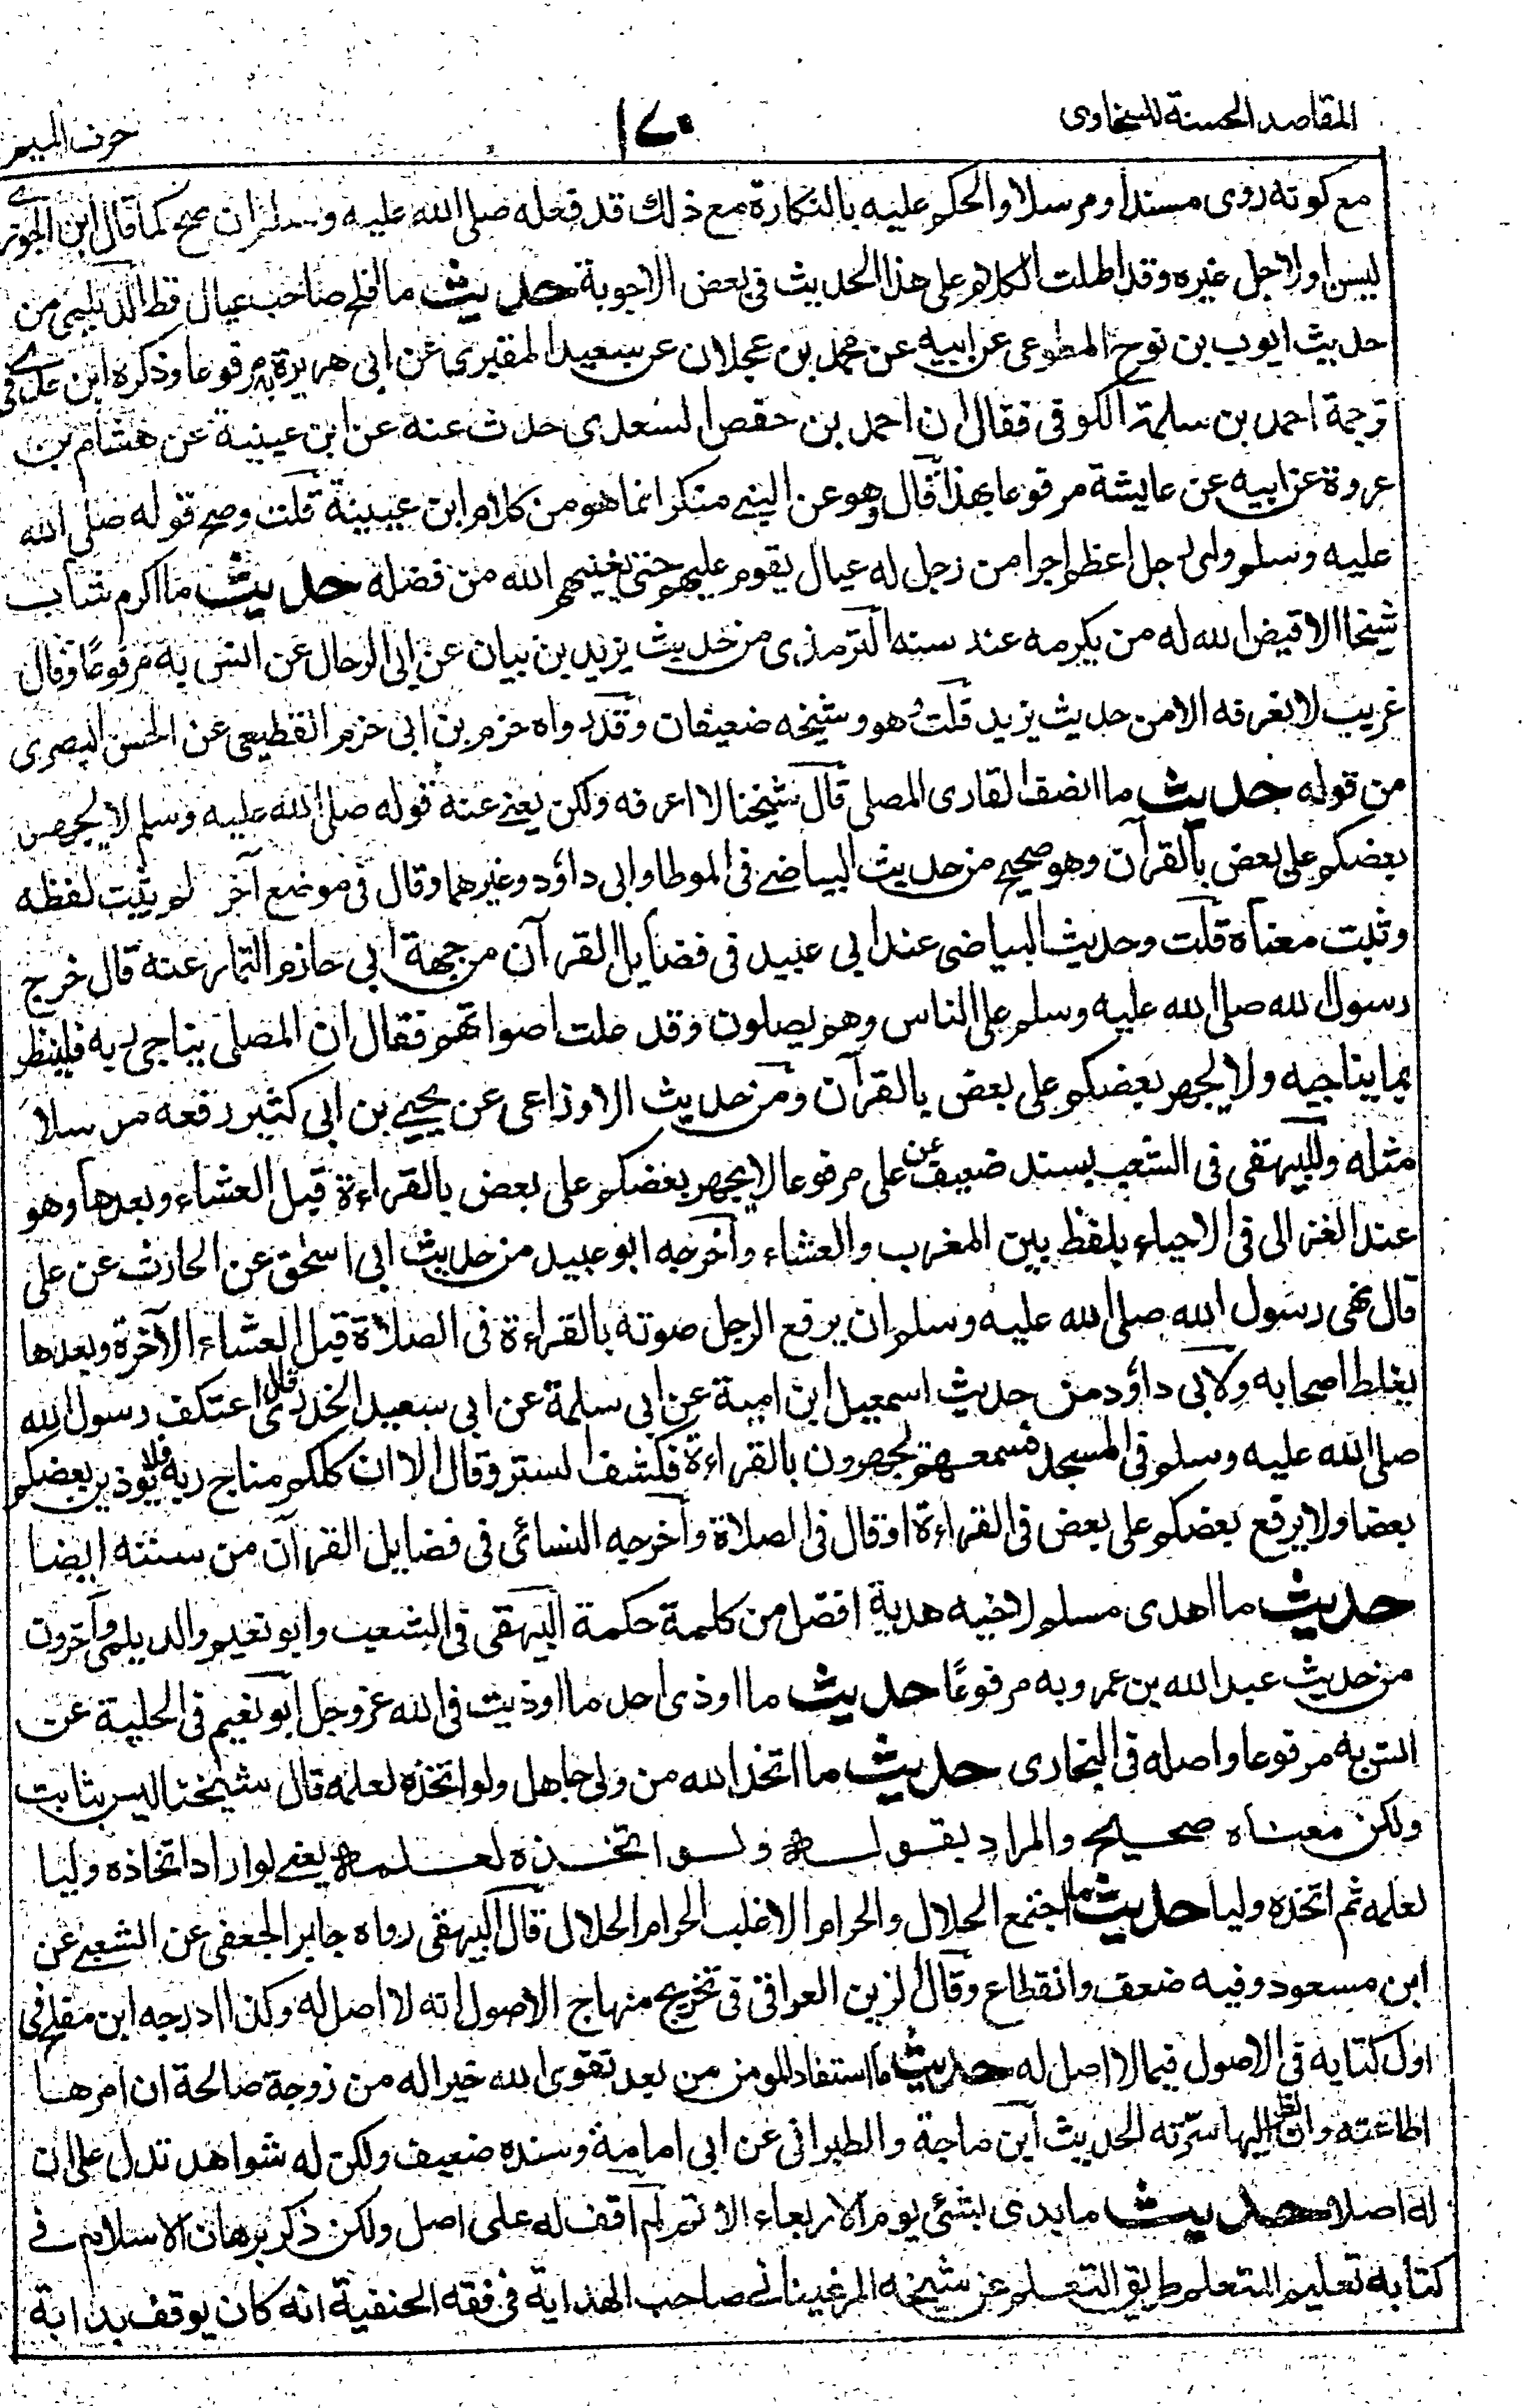 المقاصد الحسنة للسخاوى
١٧٠
حرف الميم
مع كونه روى مسندا ومرسلا والحكم عليه بالنكارة مع ذلك قد فعله صلى الله عليه وسلم ان صح كما قال ابن الجوزى
ليس اولاجل غيره وقد اطلت الكلام على هذا الحديث فى بعض الاجوبة حديث ما افلح صاحب عيال قط الديلمى من
حديث ايوب بن نوح المطوعى عن ابيه عن محمد بن عجلان عن سعيد المقبرى عن ابى هريرة به مرفوعا وذكره ابن عدى فى
ترجمة احمد بن سلمة الكوفى فقال ان احمد بن حفص السعدى حدث عنه عن ابن عيينة عن هشام بن
عروة عن ابيه عن عايشة مرفوعا بهذا قال وهو عن النبى منكر انما هو من كلام ابن عيينة قلت وصح قوله صلى الله
عليه وسلم واى رجل اعظم اجرا من رجل له عيال يقوم عليهم حتى يغنيهم الله من فضله حديث ما اكرم شاب
شيخا الا قيض الله له من يكرمه عند سنه الترمذى من حديث يزيد بن بيان عن ابى الرحال عن انس به مرفوعا وقال
غريب لا نعرفه الا من حديث يزيد قلت هو وشيخه ضعيفان وقد رواه حزم بن ابى حزم القطيعى عن الحسن البصرى
من قوله حديث ما انصف القارى المصلى قال شيخنا لا اعرفه ولكن يغنى عنه قوله صلى الله عليه وسلم لا يجهر
بعضكم على بعض بالقرآن وهو صحيح من حديث البياضى فى الموطا وابى داؤد وغيرهما وقال فى موضع آخر لم يثبت لفظه
وثبت معناه قلت وحديث البياضى عند ابى عبيد فى فضايل القرآن من جهة ابى حازم التمار عنه قال خرج
رسول الله صلى الله عليه وسلم على الناس وهم يصلون وقد علت اصواتهم فقال ان المصلى يناجى ربه فلينظر
بما يناجيه ولا يجهر بعضكم على بعض بالقرآن ومن حديث الاوزاعى عن يحيى بن ابى كثير رفعه مرسلا
مثله وللبيهقى فى الشعب بسند ضعيف عن على مرفوعا لا يجهر بعضكم على بعض بالقراءة قبل العشاء وبعدها وهو
عند الغزالى فى الاحياء بلفظ بين المغرب والعشاء وآخرجه ابو عبيد من حديث ابى اسحق عن الحارث عن على
قال نهى رسول الله صلى الله عليه وسلم ان يرفع الرجل صوته بالقراءة فى الصلاة قبل العشاء الآخرة وبعدها
يغلط اصحابه ولابى داؤد من حديث اسمعيل ابن امية عن ابى سلمة عن ابى سعيد الخدرى قال اعتكف رسول الله
صلى الله عليه وسلم فى المسجد فسمعهم يجهرون بالقراءة فكشف الستر وقال الا ان كلكم مناج ربه فلا يؤذين بعضكم
بعضا ولا يرفع بعضكم على بعض فى القراءة او قال فى الصلاة وآخرجه النسائى فى فضايل القرآن من سننه ايضا
حديث ما اهدى مسلم لاخيه هدية افضل من كلمة حكمة البيهقى فى الشعب وابو نعيم والديلمى وآخرون
من حديث عبد الله بن عمرو به مرفوعًا حديث ما اوذى احد ما اوذيت فى الله عز وجل ابو نعيم فى الحلية عن
انس به مرفوعا واصله فى البخارى حديث ما اتخذ الله من ولى جاهل ولو اتخذه لعلمه قال شيخنا ليس بثابت
ولكن معناه صحيح والمراد بقوله ولو اتخذه لعلمه يعنى لو اراد اتخاذه وليا
لعلمه ثم اتخذه وليا حديث ما اجتمع الحلال والحرام الا غلب الحرام الحلال قال البيهقى رواه جابر الجعفى عن الشعبى عن
ابن مسعود وفيه ضعف وانقطاع وقال الزين العراقى فى تخريج منهاج الاصول انه لا اصل له وكذا ادرجه ابن مفلح فى
اول كتابه فى الاصول فيما لا اصل له حديث ما استفاد المومن من بعد تقوى الله خيرا له من زوجة صالحة ان امرها
اطاعته وان نظر اليها سرّته الحديث ابن ماجة والطبرانى عن ابى امامة وسنده ضعيف ولكن له شواهد تدل على ان
له اصلا حديث ما بدى بشئى يوم الاربعاء الا تم لم اقف له على اصل ولكن ذكر برهان الاسلام فى
كتابه تعليم المتعلم طريق التعلم عن شيخه المرغينانى صاحب الهداية فى فقه الحنفية انه كان يوقف بداية